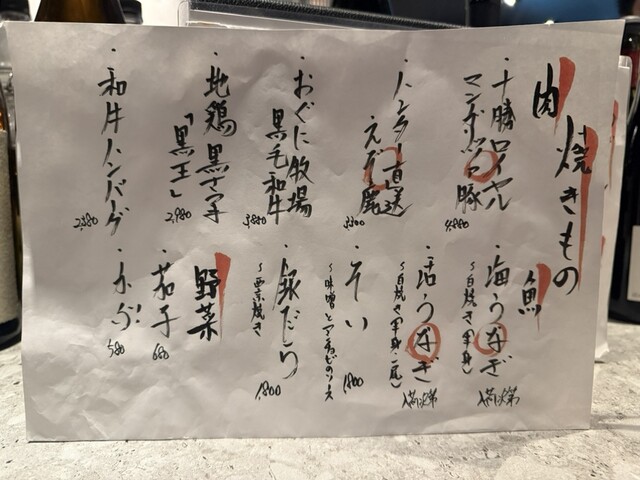 焼きもの
肉
・十勝ロイヤル
マンガリッツァ豚
4,880
・ハンター直送
えぞ鹿
3,300
・おぐに牧場
黒毛和牛
3,880
・地鶏 黒さつま
「黒王」
2,980
・和牛ハンバーグ
2,380
魚
・海うなぎ
〜白焼き(半身)
入荷次第
・活うなぎ
〜白焼き(半身・一尾)
入荷次第
・そい
〜味噌とアンチョビのソース
1,800
・銀だら
〜西京焼き
1,800
野菜
・茄子
680
・かぶ
580